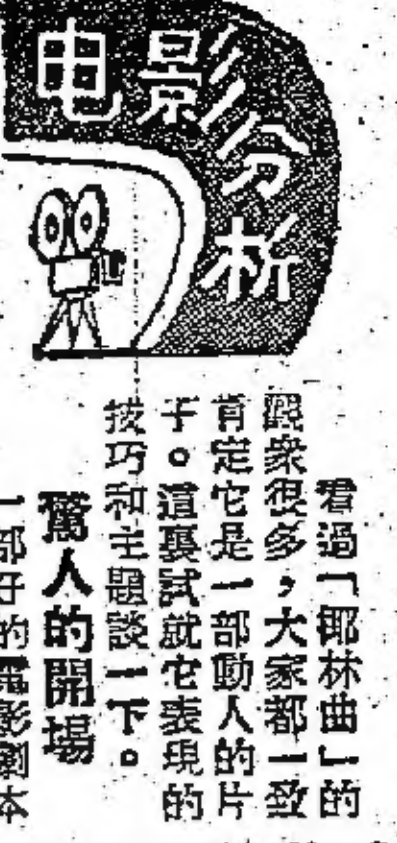 电影分析
看過「椰林曲」的
觀衆很多，大家都一致
肯定它是一部動人的片
子。這裏試就它表現的
技巧和主題談一下。
驚人的開場
一部好的電影劇本